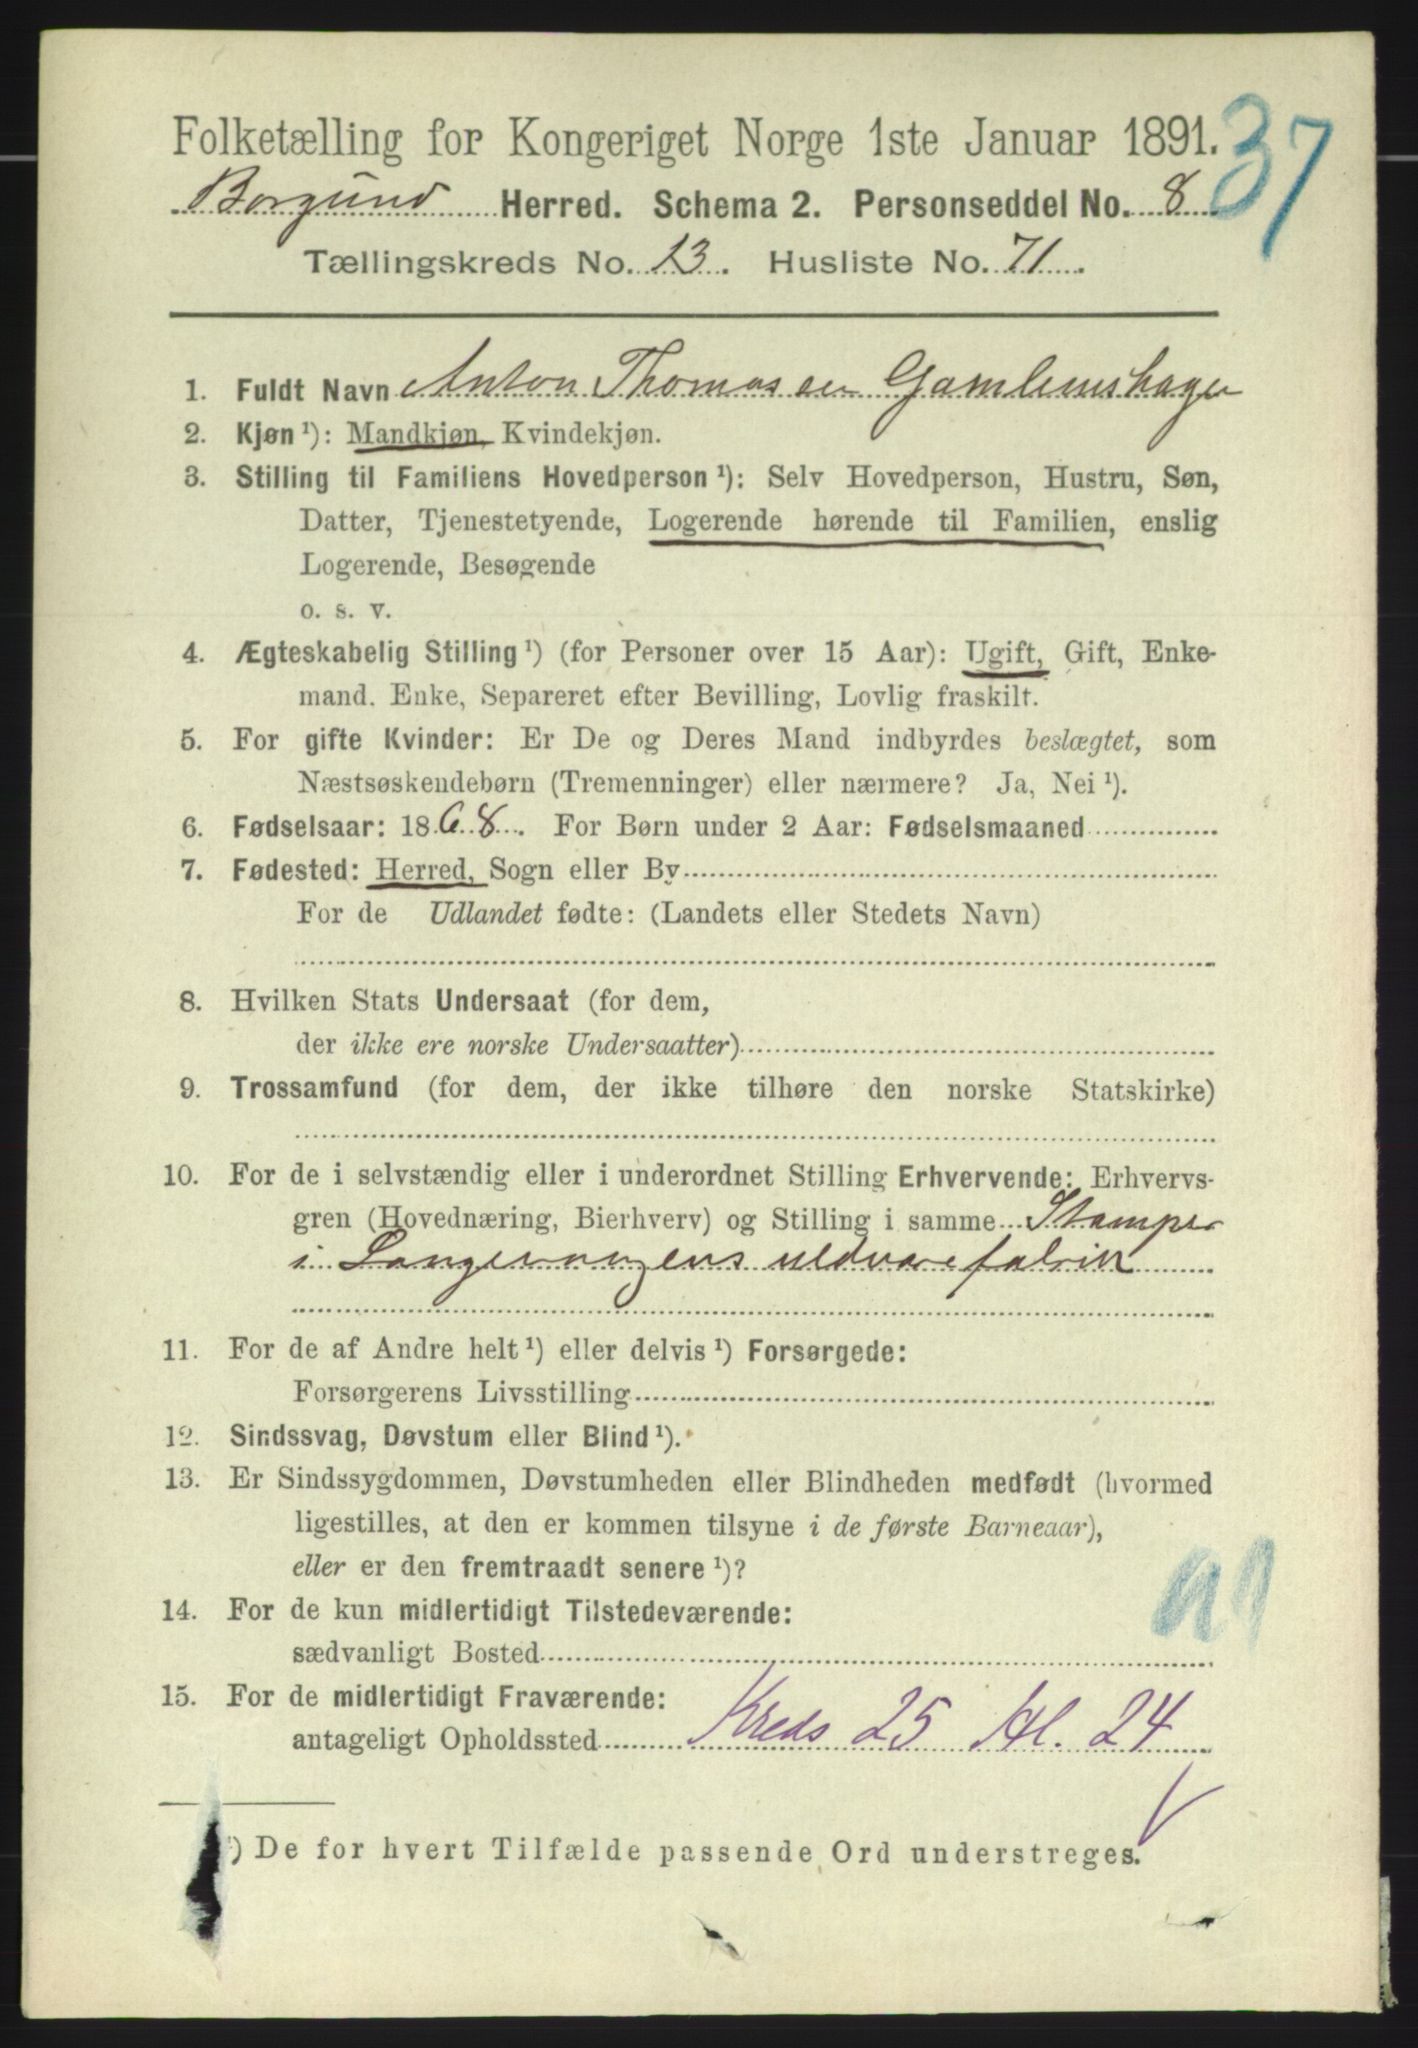 Folketælling for Kongeriget Norge 1ste Januar 1891.
37
Borgund Herred. Schema 2. Personseddel No. 8
Tællingskreds No. 23. Husliste No. 71.
1. Fuldt Navn Anton Thomassen Gamlemshagen
2. Kjøn ¹): Mandkjøn, Kvindekjøn.
3. Stilling til Familiens Hovedperson ¹): Selv Hovedperson, Hustru, Søn,
Datter, Tjenestetyende, Logerende hørende til Familien, enslig
Logerende, Besøgende
o. s. v.
4. Ægteskabelig Stilling ¹) (for Personer over 15 Aar): Ugift, Gift, Enke-
mand. Enke, Separeret efter Bevilling, Lovlig fraskilt.
5. For gifte Kvinder: Er De og Deres Mand indbyrdes beslægtet, som
Næstsøskendebørn (Tremenninger) eller nærmere? Ja, Nei ¹).
6. Fødselsaar: 1868. For Børn under 2 Aar: Fødselsmaaned
7. Fødested: Herred, Sogn eller By
For de Udlandet fødte: (Landets eller Stedets Navn)
8. Hvilken Stats Undersaat (for dem,
der ikke ere norske Undersaatter)
9. Trossamfund (for dem, der ikke tilhøre den norske Statskirke)
10. For de i selvstændig eller i underordnet Stilling Erhvervende: Erhvervs-
gren (Hovednæring, Bierhverv) og Stilling i samme Stamper
i uldvarefabrik
11. For de af Andre helt ¹) eller delvis ¹) Forsørgede:
Forsørgerens Livsstilling
12. Sindssvag, Døvstum eller Blind ¹).
13. Er Sindssygdommen, Døvstumheden eller Blindheden medfødt (hvormed
ligestilles, at den er kommen tilsyne i de første Barneaar),
eller er den fremtraadt senere ¹)?
14. For de kun midlertidigt Tilstedeværende:
sædvanligt Bosted
15. For de midlertidigt Fraværende:
antageligt Opholdssted Kreds 25 Hl. 24
¹) De for hvert Tilfælde passende Ord understreges.